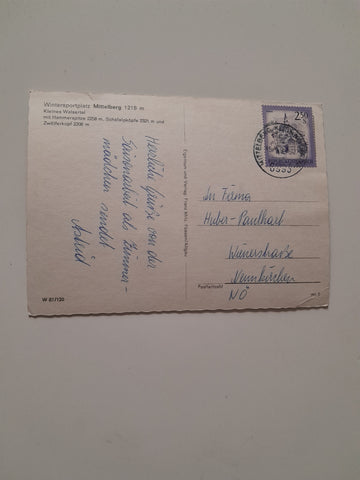 Wintersportplatz Mittelberg 1218 m
Kleines Walsertal
mit Hammerspitze 2258 m, Schafalpköpfe 2321 m und
Zwölferkopf 2308 m
Herzliche Grüße von der
Ferienarbeit als Zimmer-
mädchen sendet
Astrid
W 81/120
Eigentum und Verlag
2,50
MITTELBERG
6993
An Firma
Huber-Punkhart
Wienerstraße
Neunkirchen
NÖ
Postleitzahl